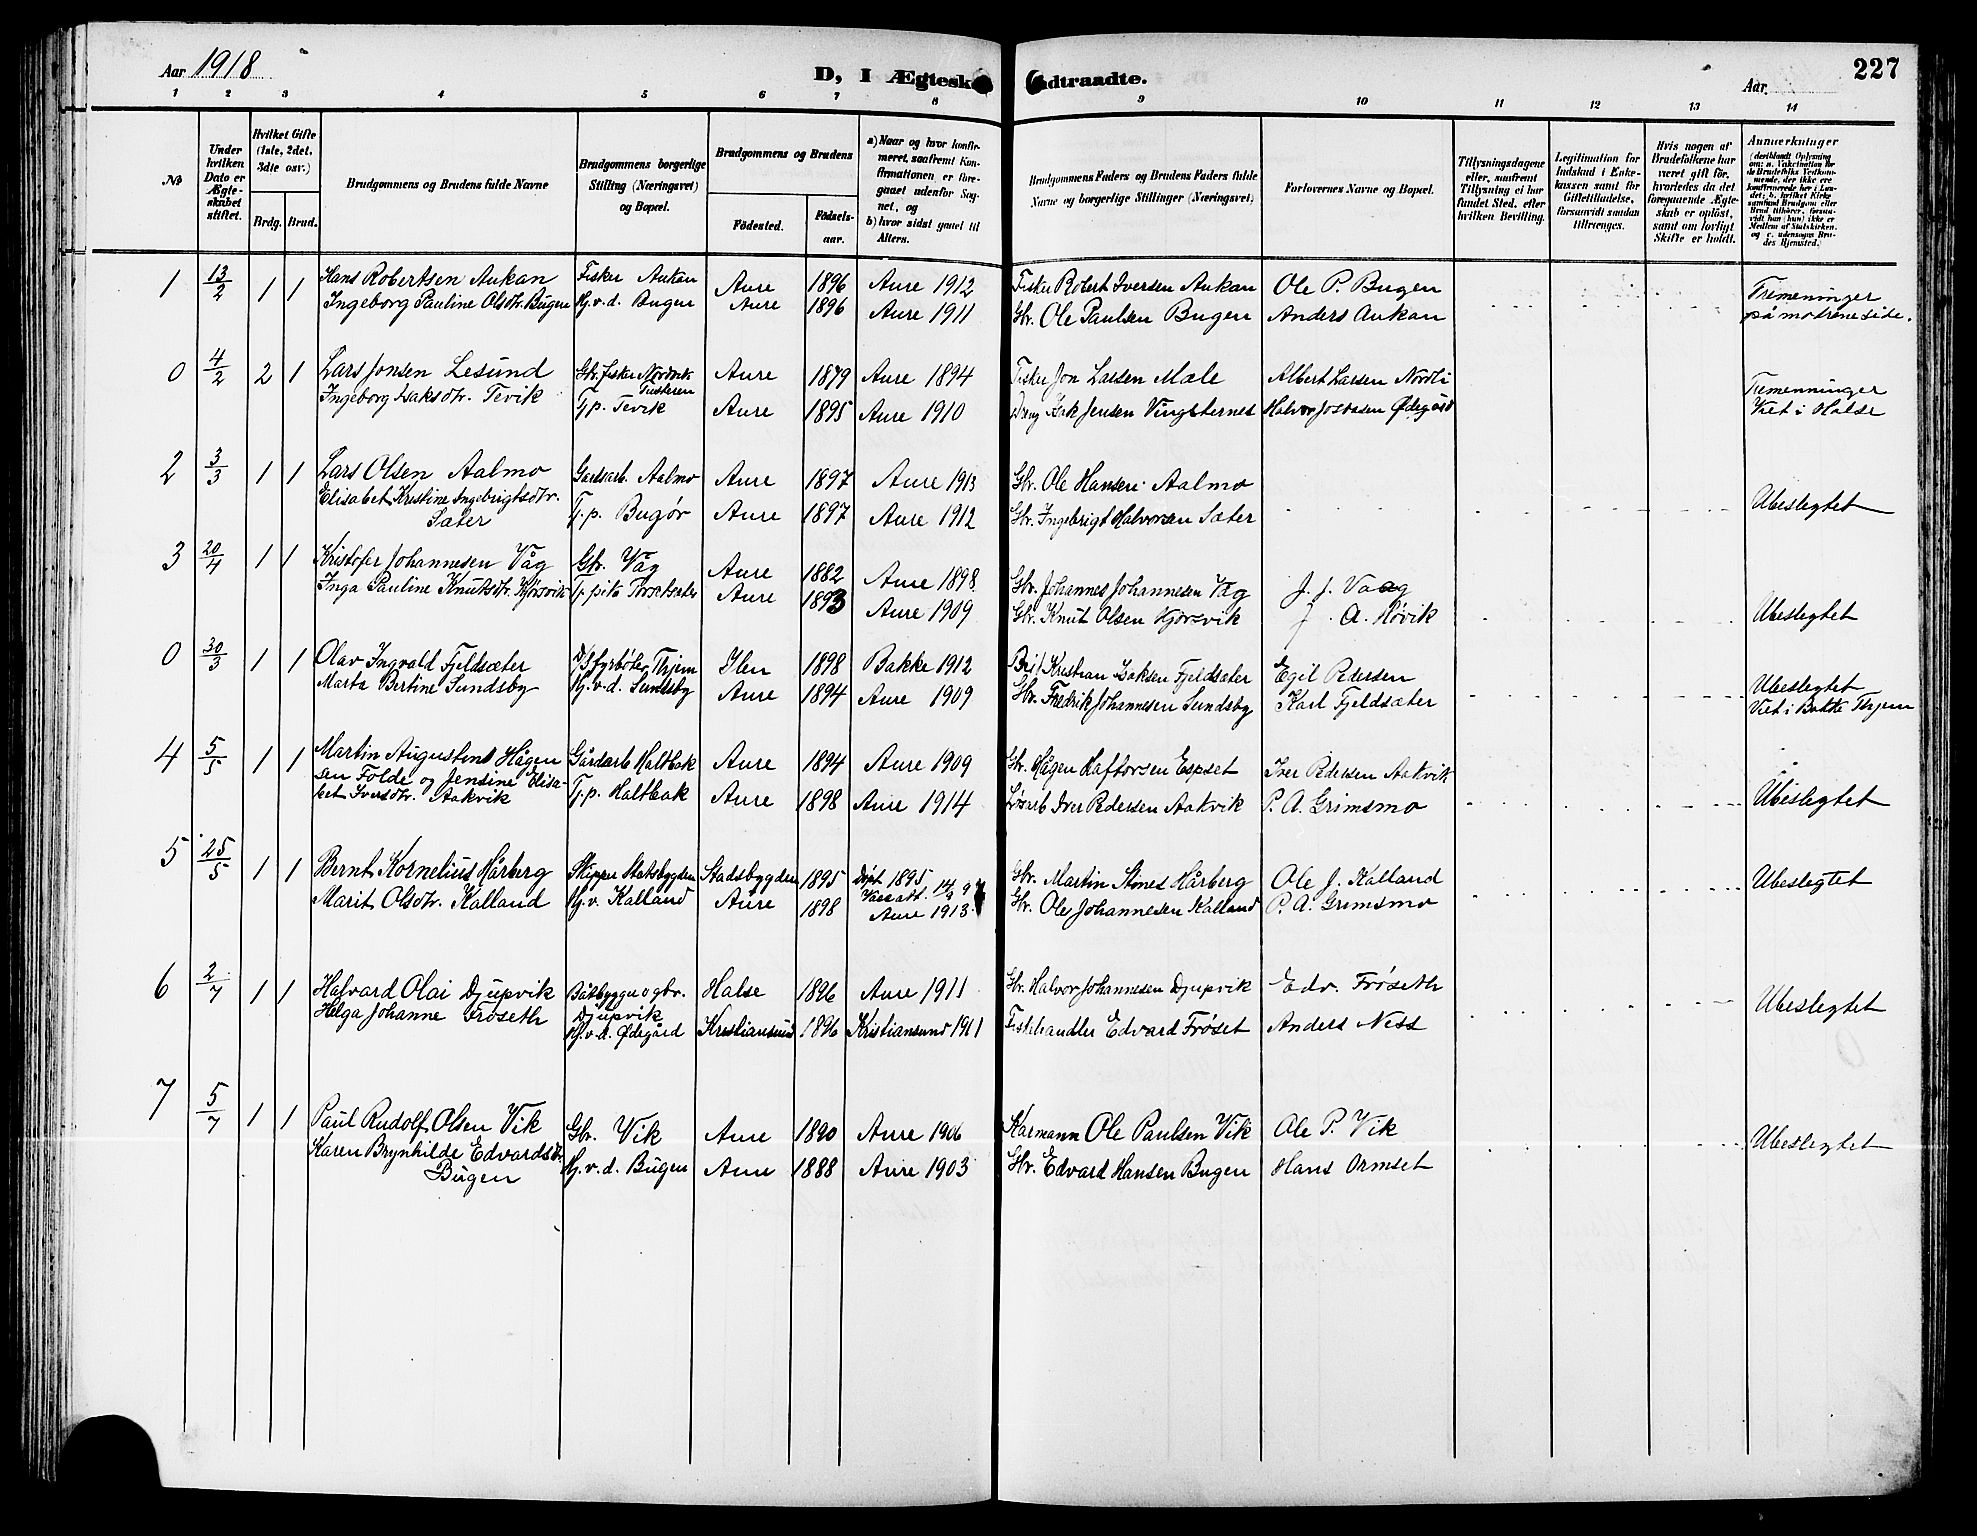 Aar 1918
D, I Ægtesk
dtraadte.
Aar
227
1 2 3 4 5 6 7 8 9 10 11 12 13 14
No
Under hvilken Dato er Ægteskabet stiftet.
Hvilket Gifte (1ste, 2det, 3die osv.)
Brdg. Brud.
Brudgommens og Brudens fulde Navne
Brudgommens borgerlige Stilling (Næringsvei) og Bopæl.
Brudgommens og Brudens
Fødested.
Fødselsaar.
a) Naar og hvor konfirmeret, saafremt Konfirmationen er foregaaet udenfor Sognet, og
b) hvor sidst gaaet til Alters.
Brudgommens Faders og Brudens Faders fulde Navne og borgerlige Stillinger (Næringsvei)
Forlovernes Navne og Bopæl.
Tillysningsdagene eller, saafremt Tillysning ei har fundet Sted, efter hvilken Bevilling.
Legitimation for Indskud i Enkekassen samt for Giftetilladelse, forsaavidt saadan tiltrænges.
Hvis nogen af Brudefolkene har været gift før, hvorledes da det foregaaende Ægteskab er opløst, samt om lovligt Skifte er holdt.
Anmærkninger
(deriblandt Oplysning om: a. Vakcination for de Brudefolks Vedkommende, der ikke ere konfirmerede her i Landet; b. hvilket Kirkesamfund Brudgom eller Brud tilhører, forsaavidt han (hun) ikke er Medlem af Statskirken, og c. udensogns Brudes Hjemsted.)
1 13/2 1 1 Hans Robertsen Aukan Fisker Aukan Aure 1896 Aure 1912 Fisker Robert Iversen Aukan Ole P. Bugen Tremeninger
Ingeborg Pauline Olsdtr. Bugen Hj.v.d. Bugen Aure 1896 Aure 1911 Gbr. Ole Paulsen Bugen Anders Aukan på mødrene side.
0 4/2 2 1 Lars Jonsen Lesund Gbr. fisker Nordvik Tusteren Aure 1879 Aure 1894 Fisker Jon Larsen Male Albert Larsen Nordli Tremenninger
Ingeborg Isaksdtr. Tevik Tj.p. Tevik Aure 1895 Aure 1910 Isak Jensen Vingsternes Halvor Josvasen Ødegård Viet i Halse
2 3/3 1 1 Lars Olsen Aalmo Gardsarb. Aalmo Aure 1897 Aure 1913 Gbr. Ole Hansen Aalmo
Elisabet Kristine Ingebrigtsdtr. Sæter Tj.p. Bugør Aure 1897 Aure 1912 Gbr. Ingebrigt Halvorsen Sæter Ubeslegtet
3 20/4 1 1 Kristofer Johannesen Våg Gbr. Våg Aure 1882 Aure 1898 Gbr. Johannes Johannesen Våg J. J. Vaag
Inga Pauline Knutsdtr. Kjørsvik Tj. pike Torsetsæter Aure 1893 Aure 1909 Gbr. Knut Olsen Kjørsvik J. A. Høvik Ubeslegtet
0 30/3 1 1 Olav Ingvald Fjeldsæter D/S fyrbøter, Thjem Ilen 1898 Bakke 1912 Kristian Isaksen Fjeldsæter Egil Pedersen Ubeslegtet
Marta Bertine Sundsby Hj.v.d. Sundsby Aure 1894 Aure 1909 Gbr. Fredrik Johannesen Sundsby Karl Fjeldsæter Viet i Bakke Thjem
4 5/5 1 1 Martin Augustend Hågensen Folde og Jensine Elisabet Iversdtr. Aakvik Gårdarb Haltbak Aure 1894 Aure 1909 Gbr. Hågen Haftorsen Espset Iver Pedersen Aakvik
Tj.p. Haltbak Aure 1898 Aure 1914 Løsarb Iver Pedersen Aakvik P. A. Grimsmo Ubeslegtet
5 25/5 1 1 Bernt Kornelius Hårberg Skipper Statsbygden Stadsbygden 1895 Døpt 1895 Gbr. Martin Simes Hårberg Ole J. Kalland Ubeslegtet
Marit Olsdtr. Kalland Hj.v. Kalland Aure 1898 Aure 1913 Gbr. Ole Johannesen Kalland P. A. Grimsmo
6 2/7 1 1 Halvard Olai Djupvik Båtbygger og br. Djupvik Halse 1896 Aure 1911 Gbr. Halvor Johannesen Djupvik Edv. Frøseth
Helga Johanne Frøseth Hj.v.d. Ødegård Kristiansund 1896 Kristiansund 1911 Fiskehandler Edvard Frøset Anders Ness Ubeslegtet
7 5/7 1 1 Paul Rudolf Olsen Vik Gbr. Vik Aure 1890 Aure 1906 Kårmann Ole Paulsen Vik Ole P. Vik Ubeslegtet
Karen Brynhilde Edvardsd. Bugen Hj.v.d. Bugen Aure 1888 Aure 1903 Gbr. Edvard Hansen Bugen Hans Ormset